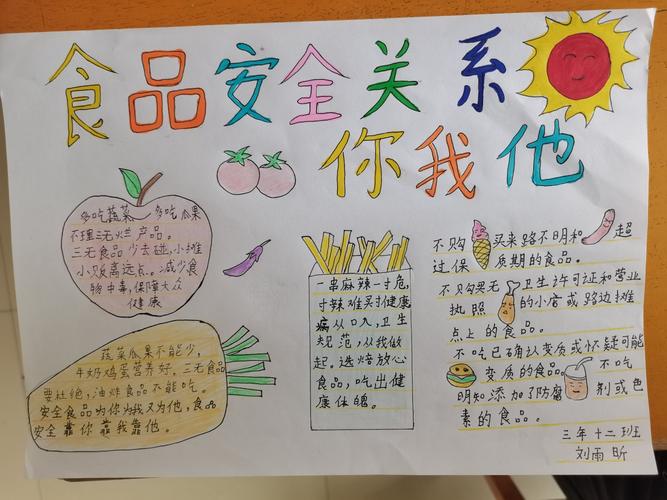 食品安全关系
你我他
多吃蔬菜 多吃瓜果
不理三无烂产品。
三无食品少去碰,小摊
小贩离远点。减少食
物中毒,保障大众
健康
蔬菜瓜果不能少,
牛奶鸡蛋营养好。三无食品
要杜绝,油炸食品不能吃。
安全食品为你为我又为他,食品
安全靠你靠我靠他。
一串麻辣一寸危,
寸辣难买扑健康
病从口入,卫生
规范,从我做
起。选烧放心
食品,吃出健
康体魄。
不购买来路不明和超
过保质期的食品。
不购买无卫生许可证和营业
执照的小店或路边摊
点上的食品。
不吃已确认变质或怀疑可能
变质的食品。不吃
明知添加了防腐剂或色
素的食品。
三年十二班
刘雨昕